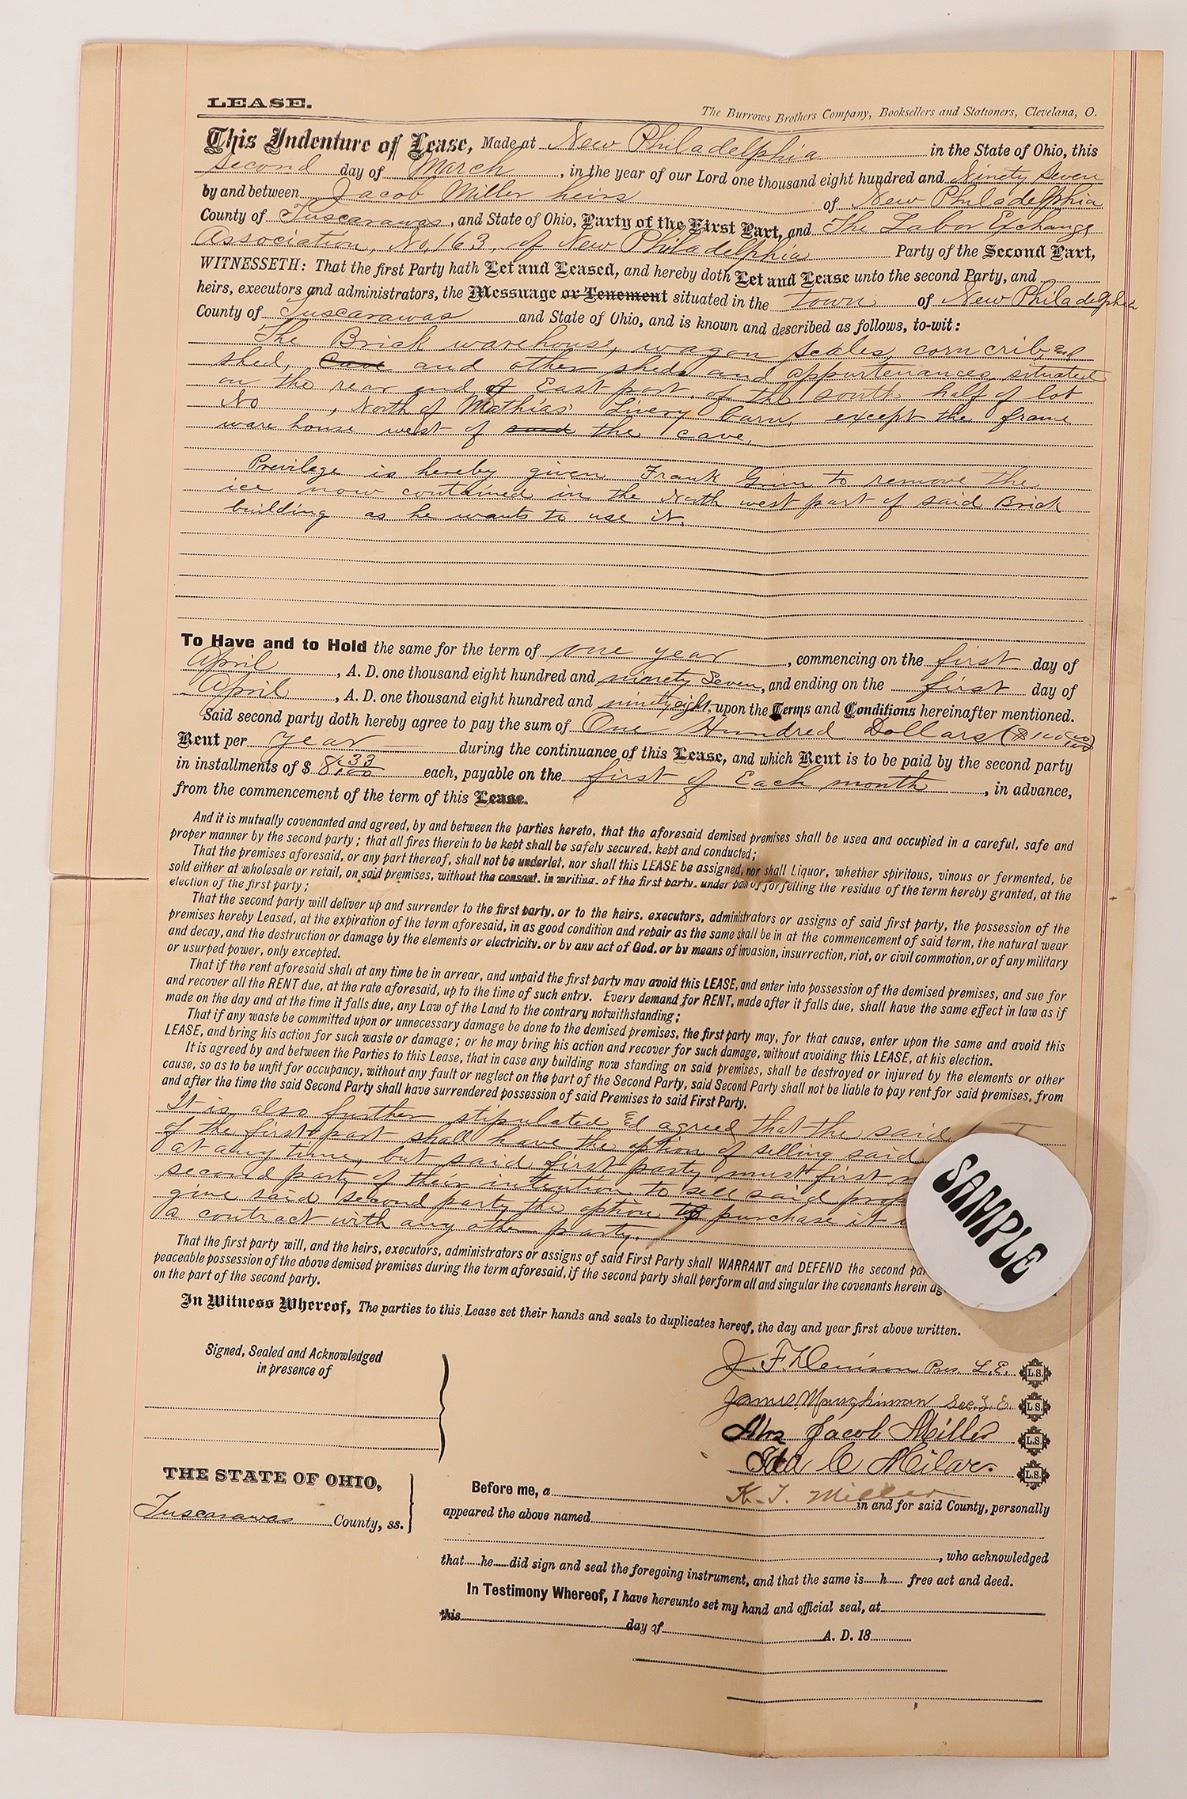 LEASE.
The Burrows Brothers Company, Booksellers and Stationers, Cleveland, O.
This Indenture of Lease, Made at New Philadelphia in the State of Ohio, this
second day of March, in the year of our Lord one thousand eight hundred and Ninety Seven
by and between Jacob Miller heirs of New Philadelphia
County of Tuscarawas, and State of Ohio, Party of the First Part, and The Labor Exchange
Association, No, 163, of New Philadelphia Party of the Second Part,
WITNESSETH: That the first Party hath Let and Leased, and hereby doth Let and Lease unto the second Party, and
heirs, executors and administrators, the Messuage or Tenement situated in the Town of New Philadelphia
County of Tuscarawas and State of Ohio, and is known and described as follows, to-wit:
The Brick warehouse, wagon scales, corn crib and
shed, Cave and other sheds and appurtenances situated
on the rear end of East part of the south half of lot
No , North of Mathias' Livery barn, except the frame
ware house west of said the cave.
Previlege is hereby given Frank Grim to remove the
ice now contained in the North west part of said Brick
building as he wants to use it.
To Have and to Hold the same for the term of one year, commencing on the first day of
April, A. D. one thousand eight hundred and ninety Seven, and ending on the first day of
April, A. D. one thousand eight hundred and ninety eight, upon the Terms and Conditions hereinafter mentioned.
Said second party doth hereby agree to pay the sum of One Hundred Dollars ($100 00/100)
Rent per year during the continuance of this Lease, and which Rent is to be paid by the second party
in installments of $ 8 33/100 each, payable on the first of Each month, in advance,
from the commencement of the term of this Lease.
And it is mutually covenanted and agreed, by and between the parties hereto, that the aforesaid demised premises shall be used and occupied in a careful, safe and
proper manner by the second party; that all fires therein to be kept shall be safely secured, kept and conducted;
That the premises aforesaid, or any part thereof, shall not be underlet, nor shall this LEASE be assigned, nor shall Liquor, whether spiritous, vinous or fermented, be
sold either at wholesale or retail, on said premises, without the consent, in writing, of the first party, under pain of forfeiting the residue of the term hereby granted, at the
election of the first party;
That the second party will deliver up and surrender to the first party, or to the heirs, executors, administrators or assigns of said first party, the possession of the
premises hereby Leased, at the expiration of the term aforesaid, in as good condition and repair as the same shall be in at the commencement of said term, the natural wear
and decay, and the destruction or damage by the elements or electricity, or by any act of God, or by means of invasion, insurrection, riot, or civil commotion, or of any military
or usurped power, only excepted.
That if the rent aforesaid shall at any time be in arrear, and unpaid the first party may avoid this LEASE, and enter into possession of the demised premises, and sue for
and recover all the RENT due, at the rate aforesaid, up to the time of such entry. Every demand for RENT, made after it falls due, shall have the same effect in law as if
made on the day and at the time it falls due, any Law of the Land to the contrary notwithstanding;
That if any waste be committed upon or unnecessary damage be done to the demised premises, the first party may, for that cause, enter upon the same and avoid this
LEASE, and bring his action for such waste or damage; or he may bring his action and recover for such damage, without avoiding this LEASE, at his election.
It is agreed by and between the Parties to this Lease, that in case any building now standing on said premises, shall be destroyed or injured by the elements or other
cause, so as to be unfit for occupancy, without any fault or neglect on the part of the Second Party, said Second Party shall not be liable to pay rent for said premises, from
and after the time the said Second Party shall have surrendered possession of said Premises to said First Party.
It is also further stipulated & agreed that the said
of the first part shall have the option of selling said
at any time, but said first party must first
second party of their intention to sell said
give said second party the option to purchase it
a contract with any other party.
SAMPLE
That the first party will, and the heirs, executors, administrators or assigns of said First Party shall WARRANT and DEFEND the second
peaceable possession of the above demised premises during the term aforesaid, if the second party shall perform all and singular the covenants herein
on the part of the second party.
In Witness Whereof, The parties to this Lease set their hands and seals to duplicates hereof, the day and year first above written.
Signed, Sealed and Acknowledged
in presence of
J. F. Denison Pres. L. E. L.S.
James Maughiman Sec. L. E. L.S.
Mrs Jacob Miller L.S.
Ida C L.S.
K. T. Miller
THE STATE OF OHIO,
Tuscarawas County, ss.
Before me, a in and for said County, personally
appeared the above named
, who acknowledged
that he did sign and seal the foregoing instrument, and that the same is h free act and deed.
In Testimony Whereof, I have hereunto set my hand and official seal, at
this day of A. D. 18